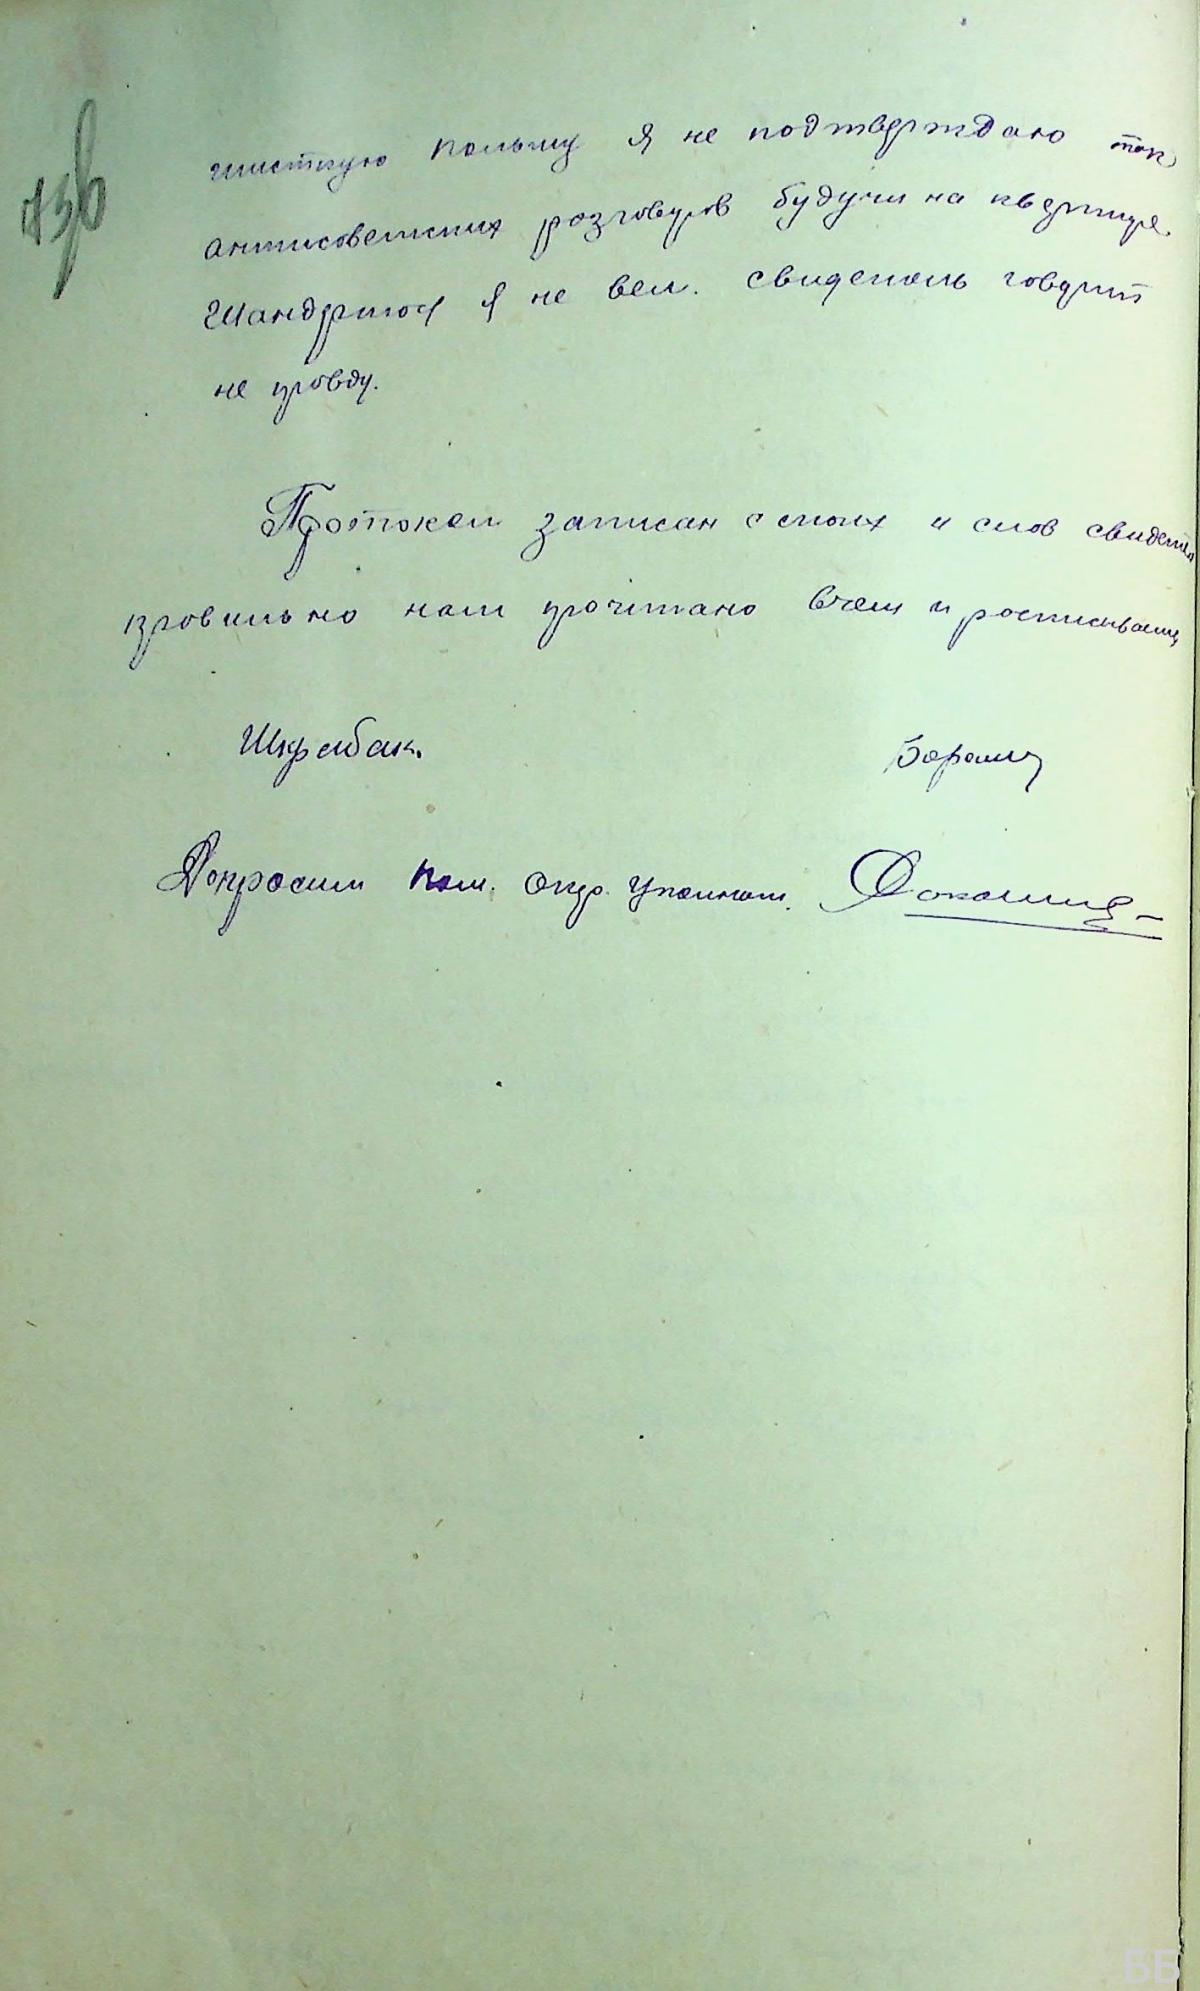 136
шисткую польшу я не подтверждаю так
антисоветских розговуров будучи на квартире
Шандрюк я не вел. свидетель говорит
не провду.
Протокол записан с моих и слов свидетеля
провильно нам прочитано в чем и росписываемся
Шкрабак.
Допросил Пом. Опер. Уполном.
ББ